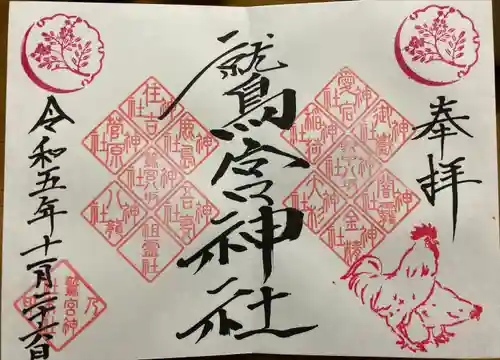 奉拝
鷲宮神社
令和五年十一月二十六日
住吉神社
鹿島神社
菅原神社
八幡神社
祖霊社
愛宕神社
御嶽神社
稲荷神社
大杉神社
金精神社
鷲宮神